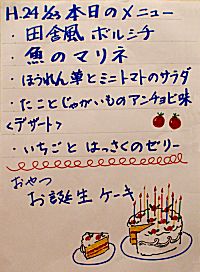 H.24 1/23 本日のメニュー
・田舎風ボルシチ
・魚のマリネ
・ほうれん草とミニトマトのサラダ
・たことじゃがいものアンチョビ味
<デザート>
・いちごとはっさくのゼリー
おやつ
お誕生ケーキ